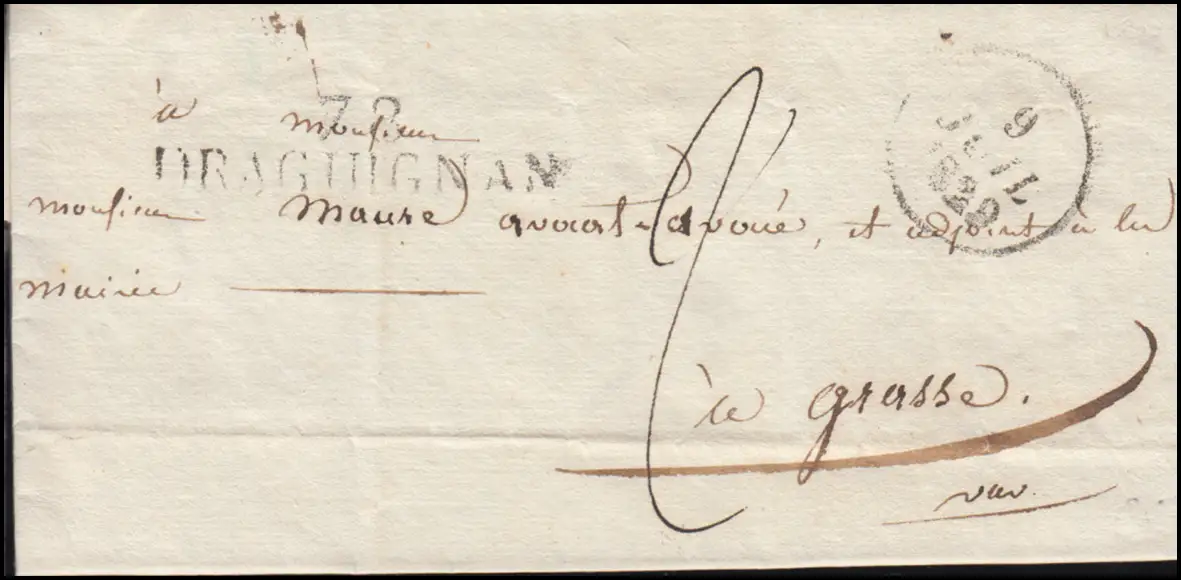 à Monsieur
78
DRAGUIGNAN
9
JUIL
1829
monsieur Maure avocat-avoué, et adjoint à la
mairie
à grasse.
var